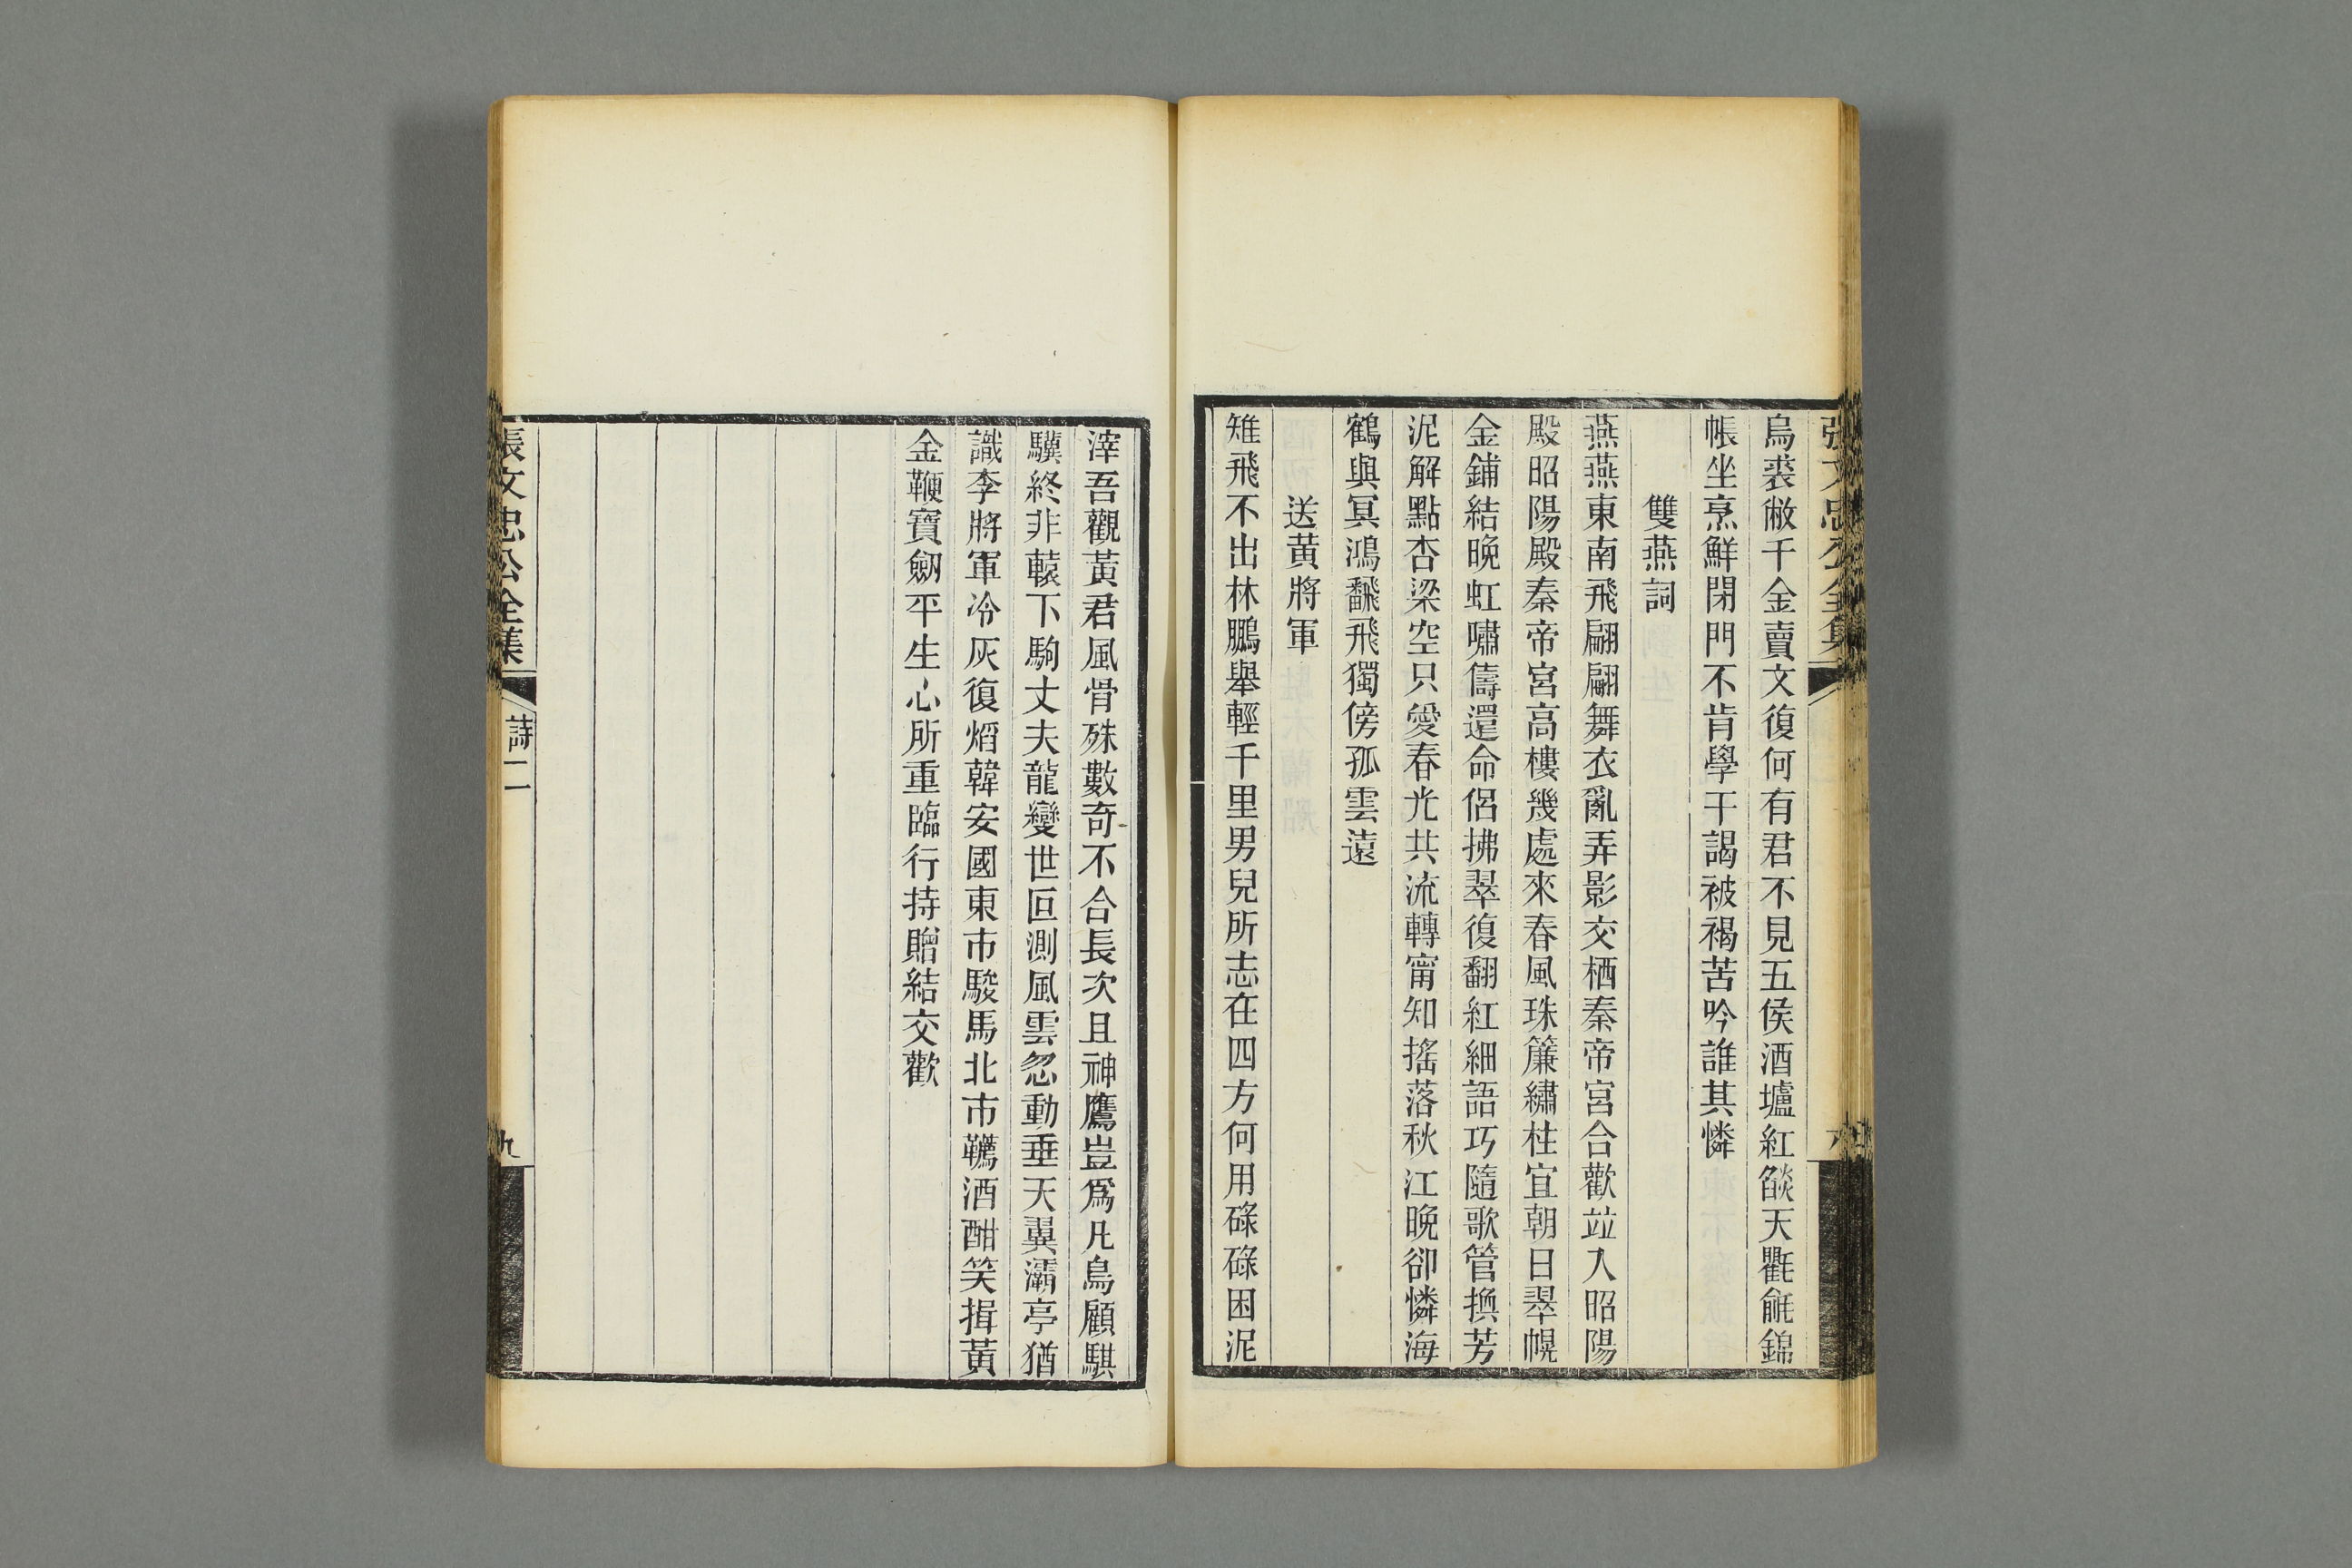 張文忠公全集
烏裘敝千金賣文復何有君不見五侯酒壚紅燄天氍毹錦
帳坐烹鮮閉門不肯學干謁被褐苦吟誰其憐
雙燕詞
燕燕東南飛翩翩舞衣亂弄影交栖秦帝宮合歡竝入昭陽
殿昭陽殿秦帝宮高樓幾處來春風珠簾繡柱宜朝日翠幌
金鋪結晚虹嘯儔還命侶拂翠復翻紅細語巧隨歌管換芳
泥解點杏梁空只愛春光共流轉甯知搖落秋江晚卻憐海
鶴與冥鴻飜飛獨傍孤雲遠
送黃將軍
雉飛不出林鵬舉輕千里男兒所志在四方何用碌碌困泥
滓吾觀黃君風骨殊數奇不合長次且神鷹豈爲凡鳥顧騏
驥終非轅下駒丈夫龍變世叵測風雲忽動垂天翼灞亭猶
識李將軍冷灰復熖韓安國東市駿馬北市韉酒酣笑揖黃
金鞭寶劒平生心所重臨行持贈結交歡
張文忠公全集
詩二
九